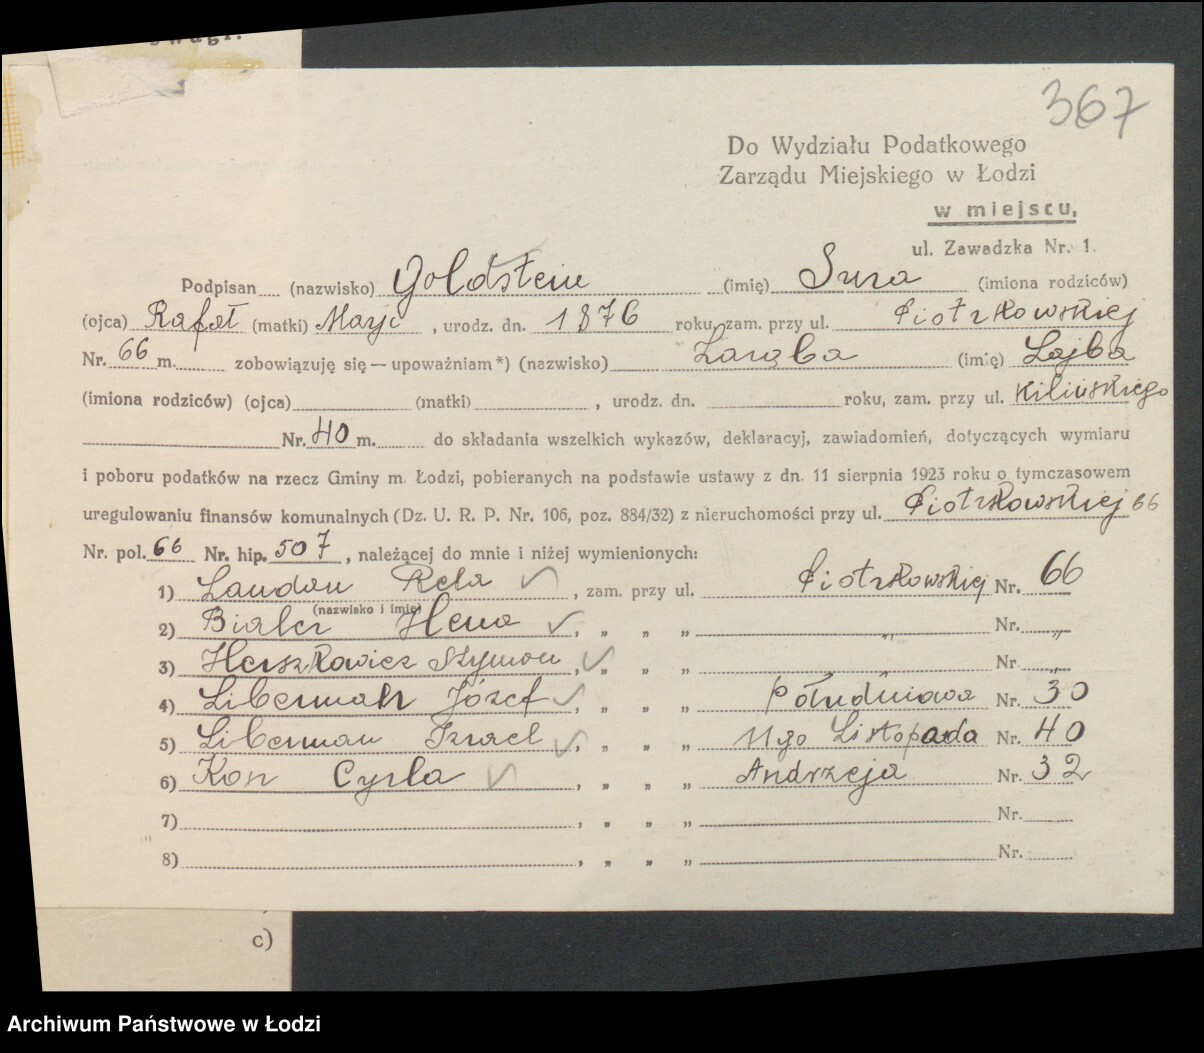 367
Do Wydziału Podatkowego
Zarządu Miejskiego w Łodzi
w miejscu,
ul. Zawadzka Nr. 1.
Podpisan (nazwisko) Goldstein (imię) Sura (imiona rodziców)
(ojca) Rafał (matki) Marji, urodz. dn. 1876 roku, zam. przy ul. Piotrkowskiej
Nr. 66 m. zobowiązuję się — upoważniam *) (nazwisko) Zaręba (imię) Lajba
(imiona rodziców) (ojca) (matki) , urodz. dn. roku, zam. przy ul. Kilińskiego
Nr. 40 m. do składania wszelkich wykazów, deklaracyj, zawiadomień, dotyczących wymiaru
i poboru podatków na rzecz Gminy m. Łodzi, pobieranych na podstawie ustawy z dn. 11 sierpnia 1923 roku o tymczasowem
uregulowaniu finansów komunalnych (Dz. U. R. P. Nr. 106, poz. 884/32) z nieruchomości przy ul. Piotrkowskiej 66
Nr. pol. 66 Nr. hip. 507, należącej do mnie i niżej wymienionych:
1) Landau Rela, zam. przy ul. Piotrkowskiej Nr. 66
(nazwisko i imię)
2) Bialer Hena, „ „ „ „ Nr. „
3) Herszkowicz Szymon, „ „ „ Nr. „
4) Liberman Józef, „ „ „ Południowa Nr. 30
5) Liberman Izrael, „ „ „ 11go Listopada Nr. 40
6) Kon Cyrla, „ „ „ Andrzeja Nr. 32
7) , „ „ „ Nr.
8) , „ „ „ Nr.
c)
Archiwum Państwowe w Łodzi